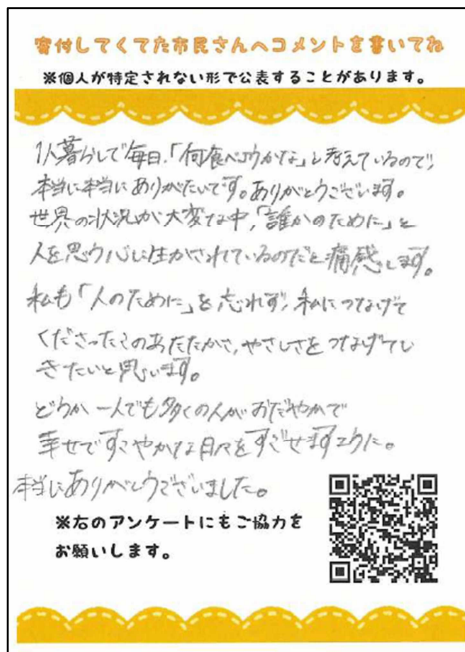 寄付してくてた市民さんへコメントを書いてね
※個人が特定されない形で公表することがあります。
1人暮らしで毎日、「何食べようかな」と考えているので、
本当に本当にありがたいです。ありがとうございます。
世界の状況が大変な中、「誰かのために」と
人を思う心に生かされているのだと痛感します。
私も「人のために」を忘れず、私につなげて
くださったこのあたたかさ、やさしさをつなげてい
きたいと思います。
どうか一人でも多くの人がおだやかで
幸せですこやかな日々をすごせますように。
本当にありがとうございました。
※右のアンケートにもご協力を
お願いします。